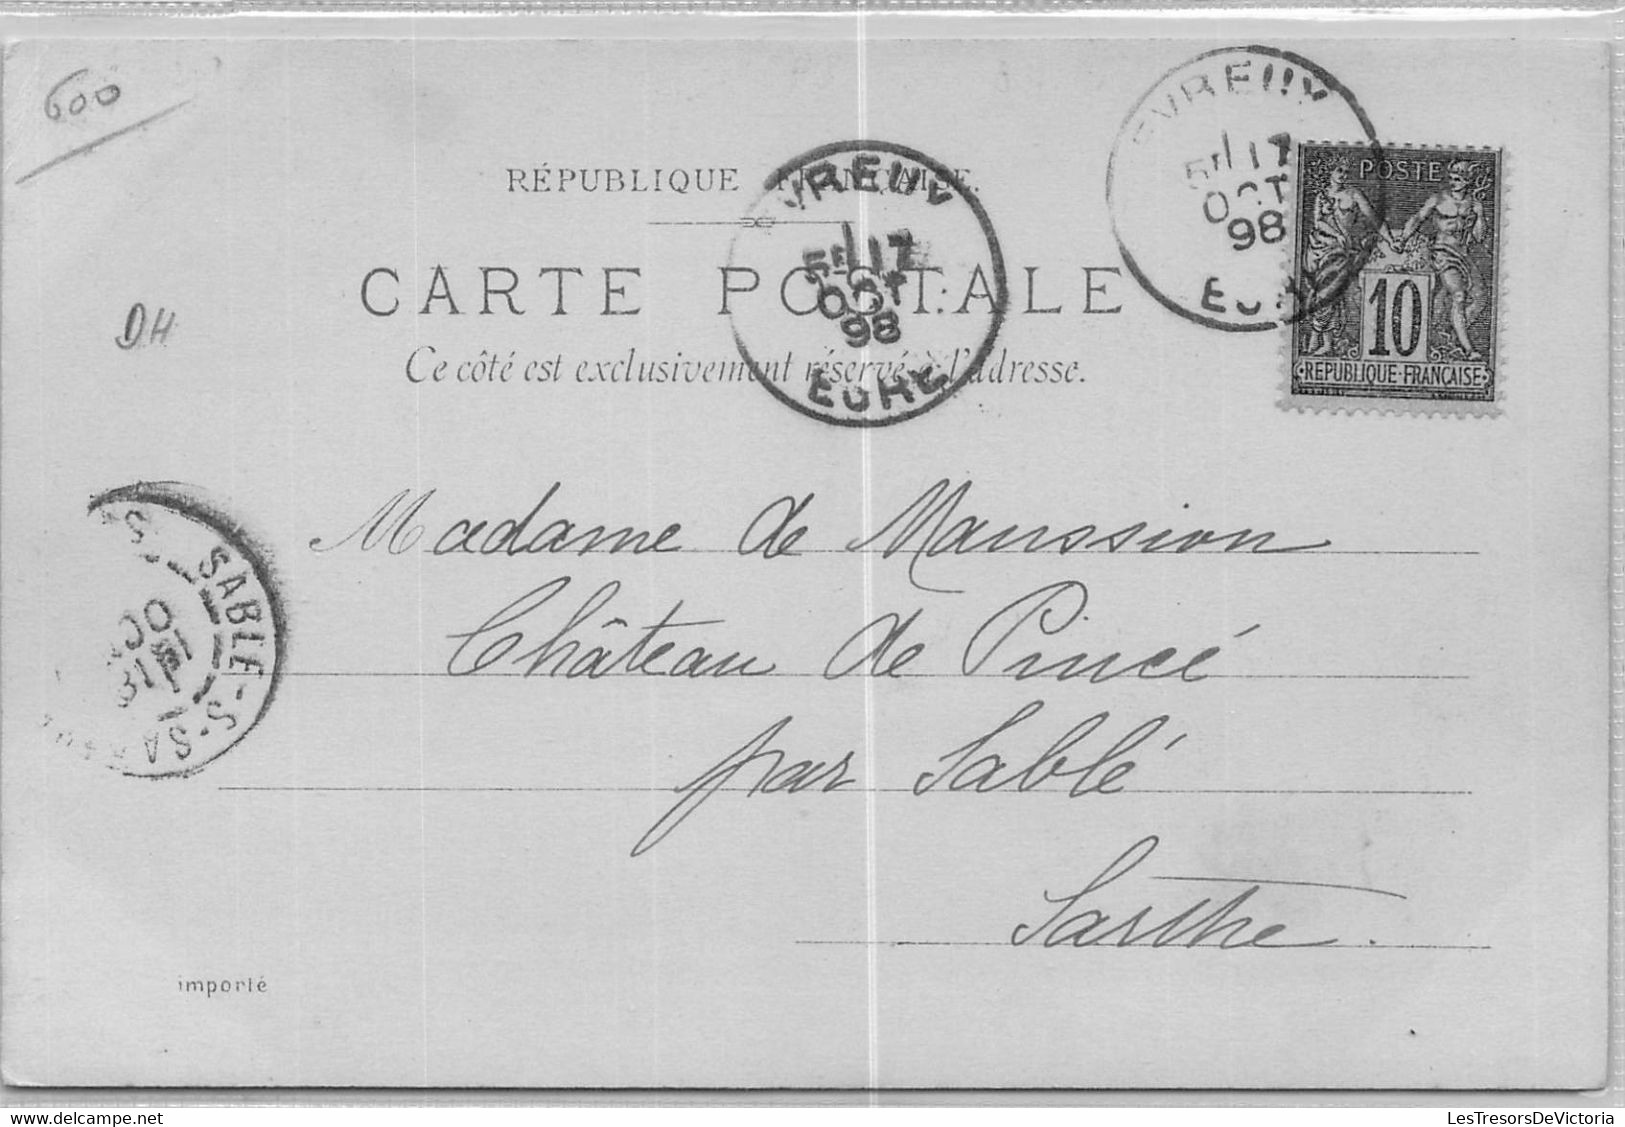 600
RÉPUBLIQUE FRANÇAISE.
CARTE POSTALE
Ce côté est exclusivement réservé à l'adresse.
DH
EVREUX
17
OCT
98
EURE
EVREUX
17
OCT
98
EURE
POSTE
10
REPUBLIQUE FRANÇAISE
SABLE-S-SARTHE
Madame de Maussion
Château de Pincé
par Sablé
Sarthe.
importé
delcampe.net
LesTresorsDeVictoria